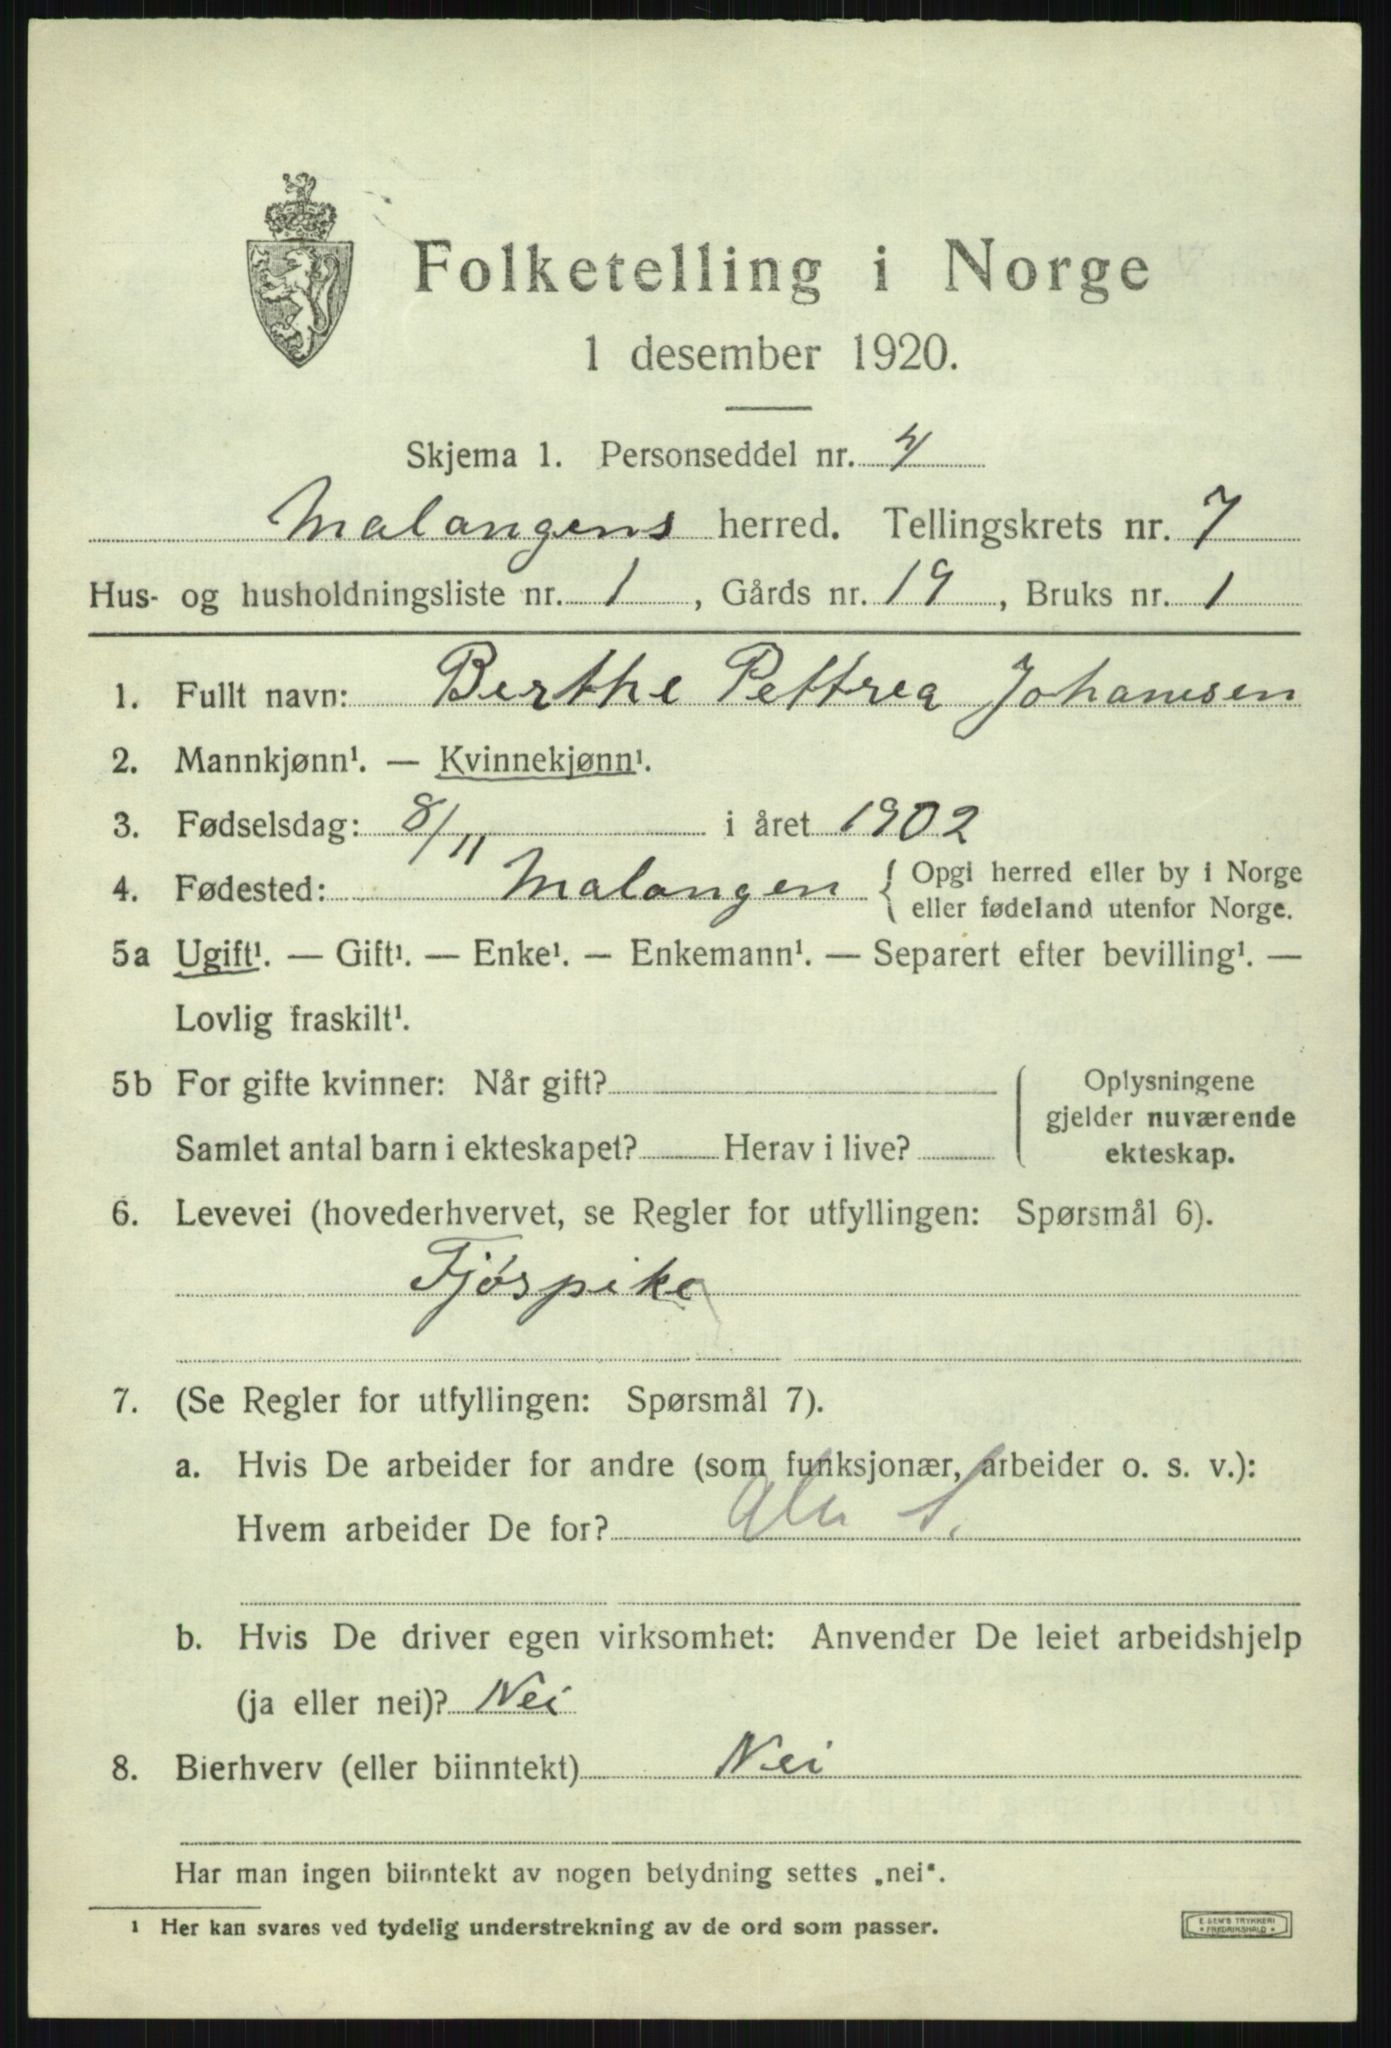 Folketelling i Norge
1 desember 1920.
Skjema 1. Personseddel nr. 4
Malangens herred. Tellingskrets nr. 7
Hus- og husholdningsliste nr. 1, Gårds nr. 19, Bruks nr. 1
1. Fullt navn: Berthe Pettrea Johansen
2. Mannkjønn¹. — Kvinnekjønn¹.
3. Fødselsdag: 8/11 i året 1902
4. Fødested: Malangen { Opgi herred eller by i Norge
eller fødeland utenfor Norge.
5a Ugift¹. — Gift¹. — Enke¹. — Enkemann¹. — Separert efter bevilling¹. —
Lovlig fraskilt¹.
5b For gifte kvinner: Når gift?
Samlet antal barn i ekteskapet? Herav i live?
Oplysningene
gjelder nuværende
ekteskap.
6. Levevei (hovederhvervet, se Regler for utfyllingen: Spørsmål 6).
Fjøspike
7. (Se Regler for utfyllingen: Spørsmål 7).
a. Hvis De arbeider for andre (som funksjonær, arbeider o. s. v.):
Hvem arbeider De for?
b. Hvis De driver egen virksomhet: Anvender De leiet arbeidshjelp
(ja eller nei)? Nei
8. Bierhverv (eller biinntekt) Nei
Har man ingen biinntekt av nogen betydning settes „nei“.
¹ Her kan svares ved tydelig understrekning av de ord som passer.
E. SEM'S TRYKKERI
FREDRIKSHALD